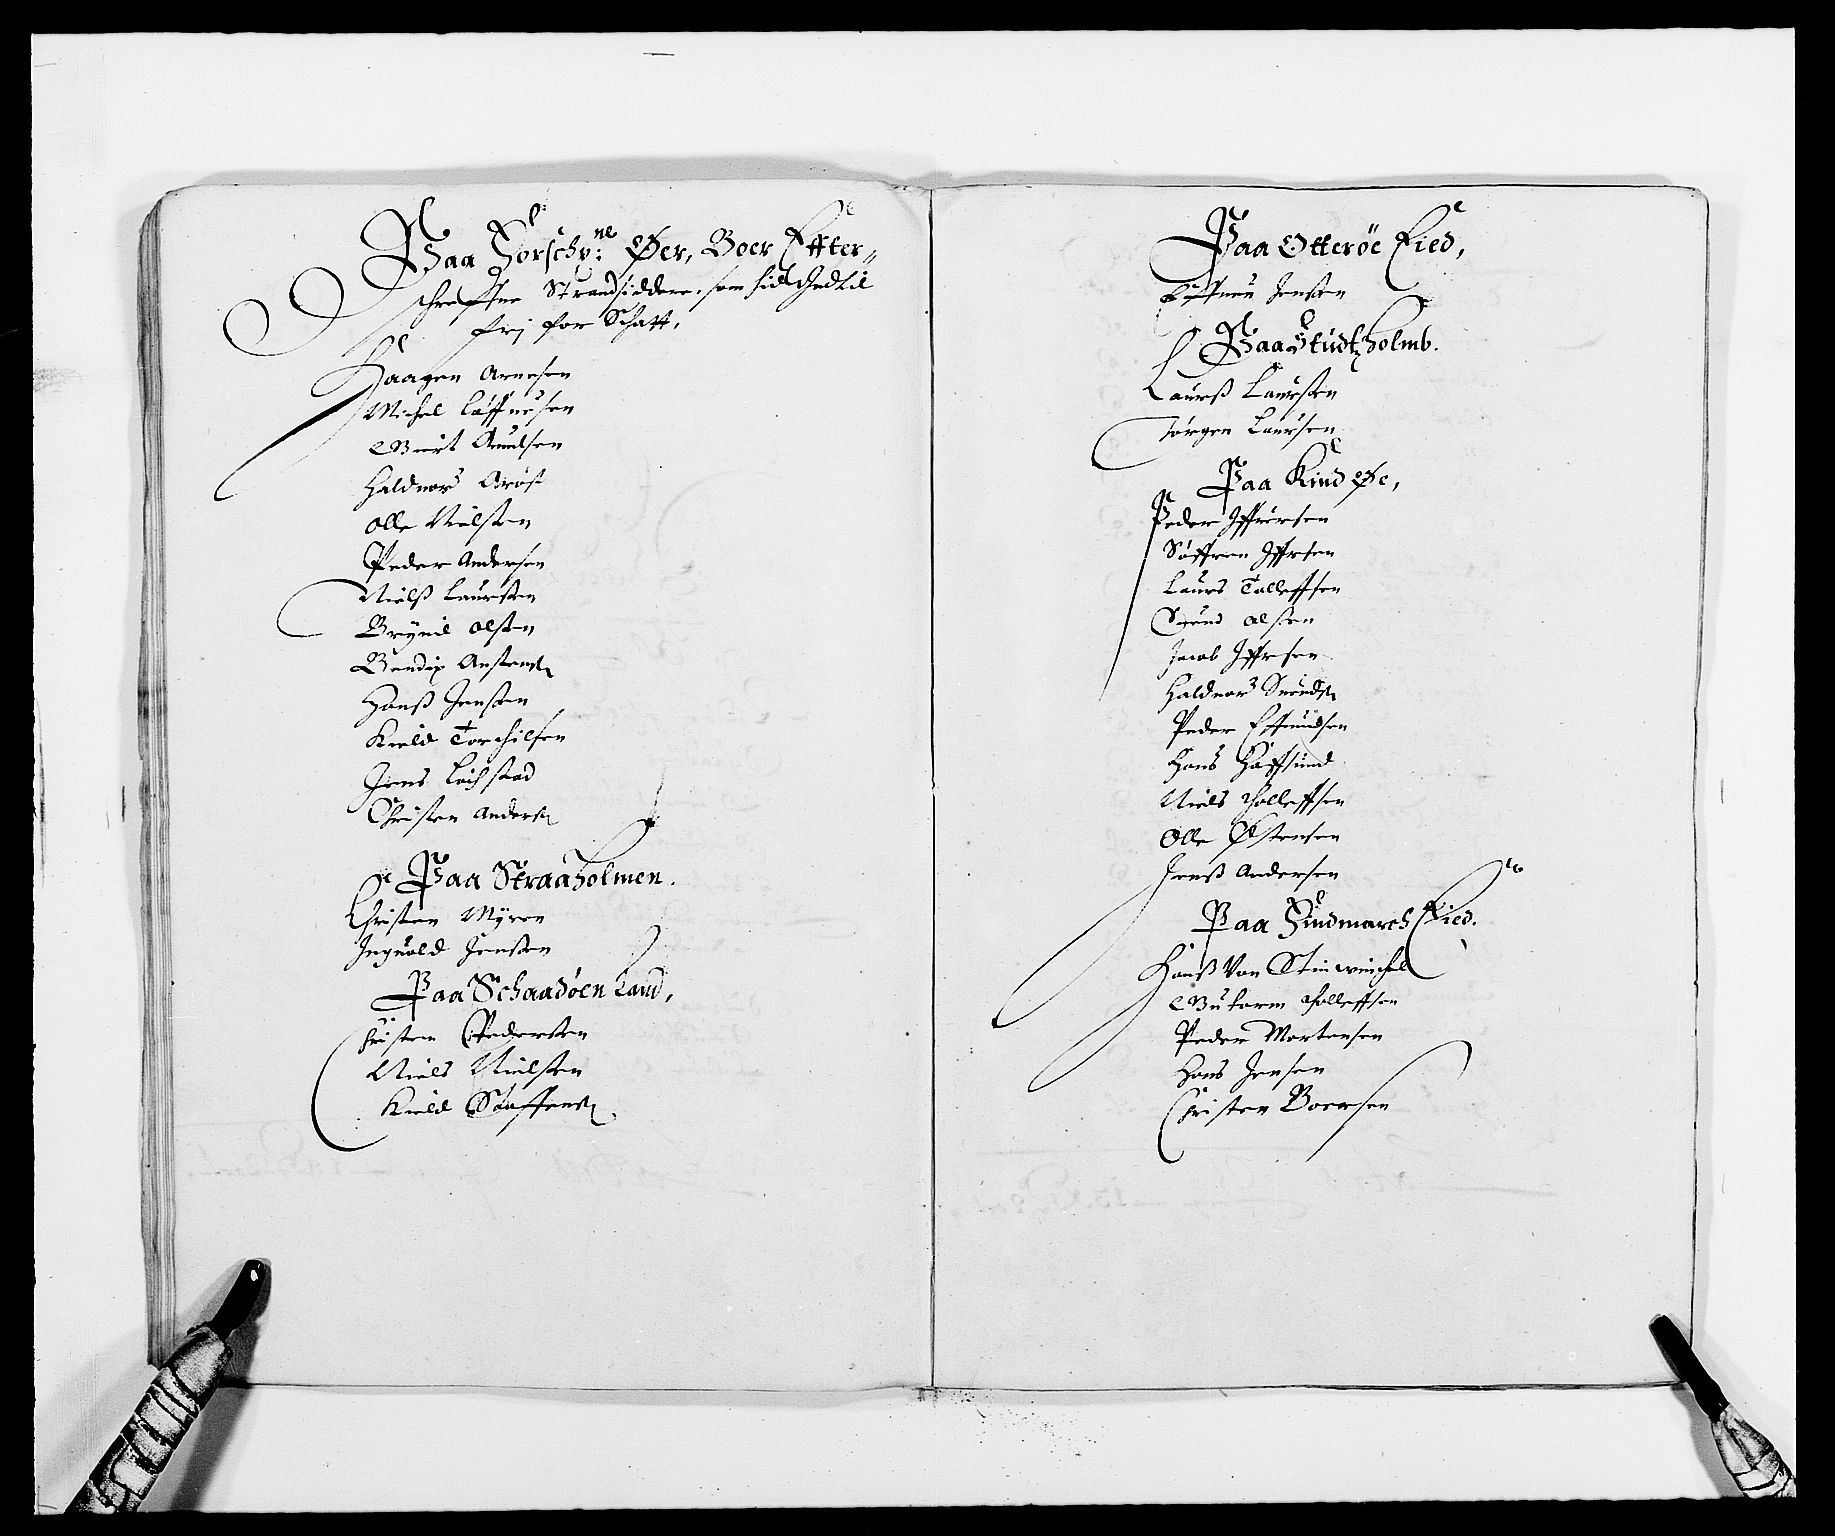 Paa Forschr:ne Øer, Boer Effter,,
schreffne Strandsiddere, som hid Indtil
frj for Schatt,
Haagen Arnesen
Michel Laffuesen
Giert Amdsen
Halduor Aröst
Olle Nielsen
Peder Andersen
Nielß Laursen
Brynil Olsen
Bendix Anstens
Hanß Jensen
Kield Torchilsen
Jens Lachstad
Christen Anders
Paa Straaholmen.
Christen Myren
Inguold Jensen
Paa Schaadöen Land,
Christen Pedersen
Niels Nielsen
Kield Staffens
Paa Otteröe Eied,
Jensen
Paa Studtzholmb.
Laurß Laursen
Jörgen Laursen
Paa Kind Øe,
Peder Iffuersen
Söffren Iffrsen
Laurs Tolleffsen
Suend Olsen
Jacob Iffrsen
Haldnor Suends
Peder Effuindsen
Hans Haffsund
Niels Tholleffsen
Olle Østensen
Jenß Andersen
Paa Findmarch Eied.
Hanß Von Stinwinchel
Gutorm Tholleffsen
Peder Mortensen
Hans Jensen
Christen Boersen